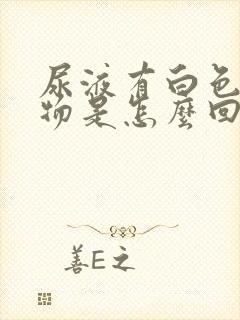 尿液有白色
物是怎麼回
善E之